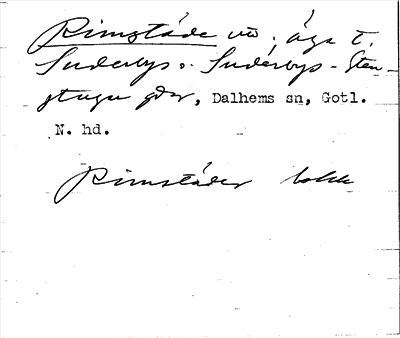 Rimstäde utr. äga t.
Suderbys o. Suderbys-Sten-
stugu gdr, Dalhems sn, Gotl.
N. hd.
Rimstädes bokk